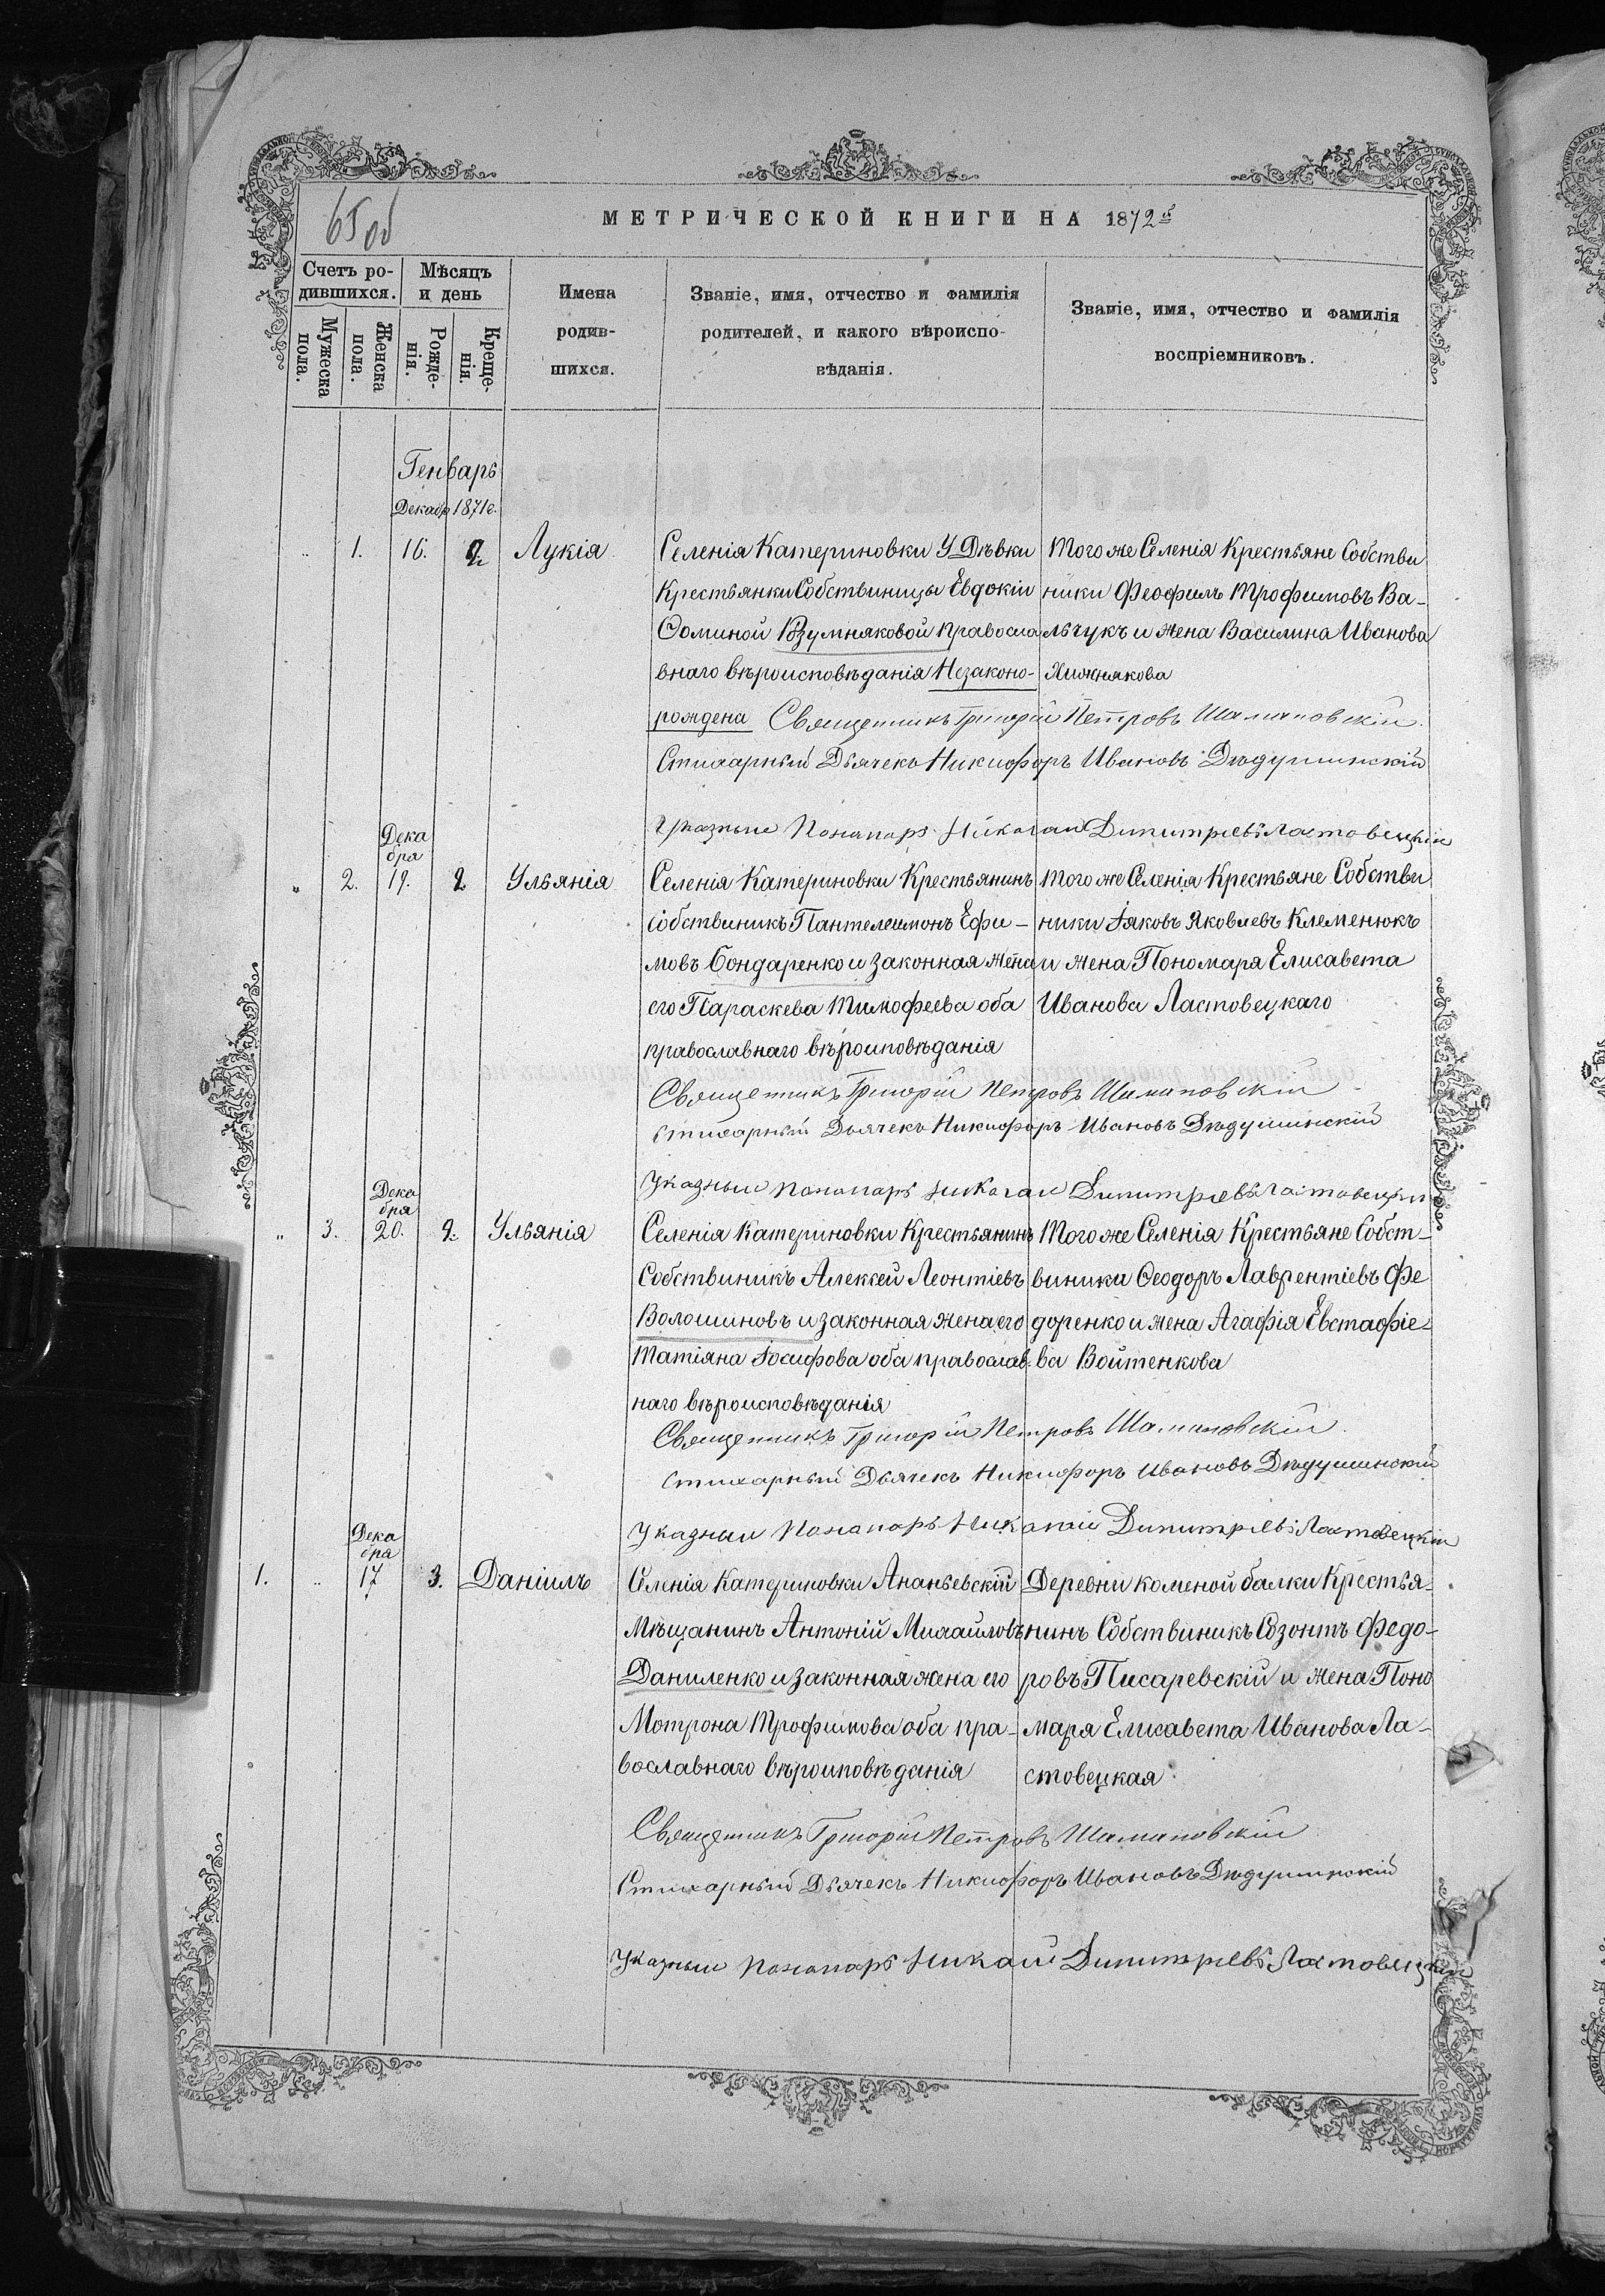 65 об
МЕТРИЧЕСКОЙ КНИГИ НА 1872й
Счетъ ро-
дившихся.
Мѣсяцъ
и день
Мужеска
пола.
Женска
пола.
Рожде-
нія.
Креще-
нія.
Имена
родив-
шихся.
Званіе, имя, отчество и фамилія
родителей, и какого вѣроиспо-
вѣданія.
Званіе, имя, отчество и фамилія
воспріемниковъ.
Генварь
Декабр 1871г.
„ 1. 16. 2. Лукія
Селенія Катериновки У Дѣвки
Крестьянки Собственицы Евдокіи
Фоминой Рзумняковой Правосла
внаго вѣроисповѣданія Незаконо-
рождена
Того же Селенія Крестьяне Собстви
ники Феофилъ Трофимовъ Ва-
льчукъ и жена Василина Иванова
Хижнякова
Священникъ Григорій Петровъ Шамановскій
Стихарный Дьячекъ Никифоръ Ивановъ Дѣдушинскій
Указный Понамарь Николай Димитріевъ Ластовецкій
Дека
бря
„ 2. 19. 2. Ульянія
Селенія Катериновки Крестьянинъ
Собствиникъ Пантелеимонъ Ефи-
мовъ Бондаренко и законная жена
его Параскева Тимофеева оба
православнаго вѣроиповѣданія
Того же Селенія Крестьяне Собстви
ники Іяковъ Яковлевъ Клеменюкъ
и жена Пономаря Елисавета
Иванова Ластовецкаго
Священникъ Григорій Петровъ Шамановскій
Стихарный Дьячекъ Никифоръ Ивановъ Дѣдушинскій
Указный Понамарь Николай Димитріевъ Ластовецкій
Дека
бря
„ 3. 20. 2. Ульянія
Селенія Катериновки Крестьянинъ
Собствиникъ Алексей Леонтіевъ
Волошиновъ и законная жена его
Татіяна Іосифова оба православ-
наго вѣроисповѣданія
Того же Селенія Крестьяне Собст-
виники Феодоръ Лаврентіевъ Фе
доренко и жена Агафія Евстафіе-
ва Войтенкова
Священникъ Григорій Петровъ Шамановскій
Стихарный Дьячекъ Никифоръ Ивановъ Дѣдушинский
Указный Понамарь Николай Димитріевъ Ластовецкій
Дека
бря
1. „ 17 3. Даніилъ
Селенія Катериновки Ананьевскій
Мѣщанинъ Антоній Михайловъ
Даниленко и законная жена его
Мотрона Трофимова оба пра-
вославнаго вѣроиповѣданія
Деревни коменой балки Крестья-
нинъ Собствиникъ Созонтъ Федо-
ровъ Писаревскій и жена Поно
маря Елисавета Иванова Ла-
стовецкая
Священникъ Григорій Петровъ Шамановскій
Стихарный Дьячекъ Никифоръ Ивановъ Дѣдушинскій
Указный Понамарь Николай Димитріевъ Ластовецкій